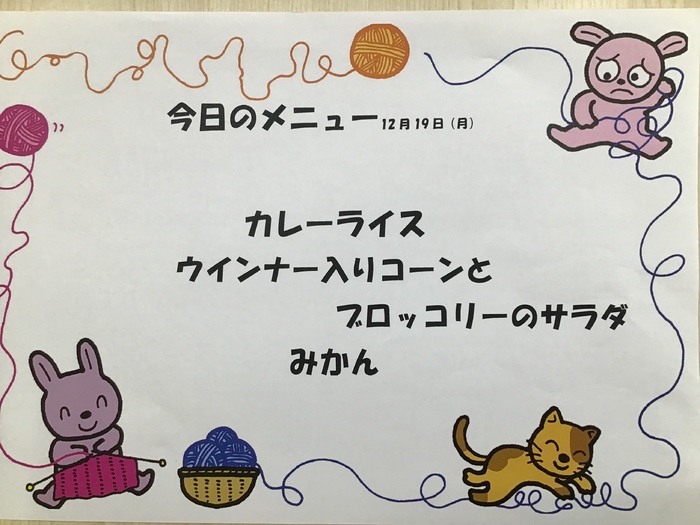 今日のメニュー12月19日（月）
カレーライス
ウインナー入りコーンと
ブロッコリーのサラダ
みかん